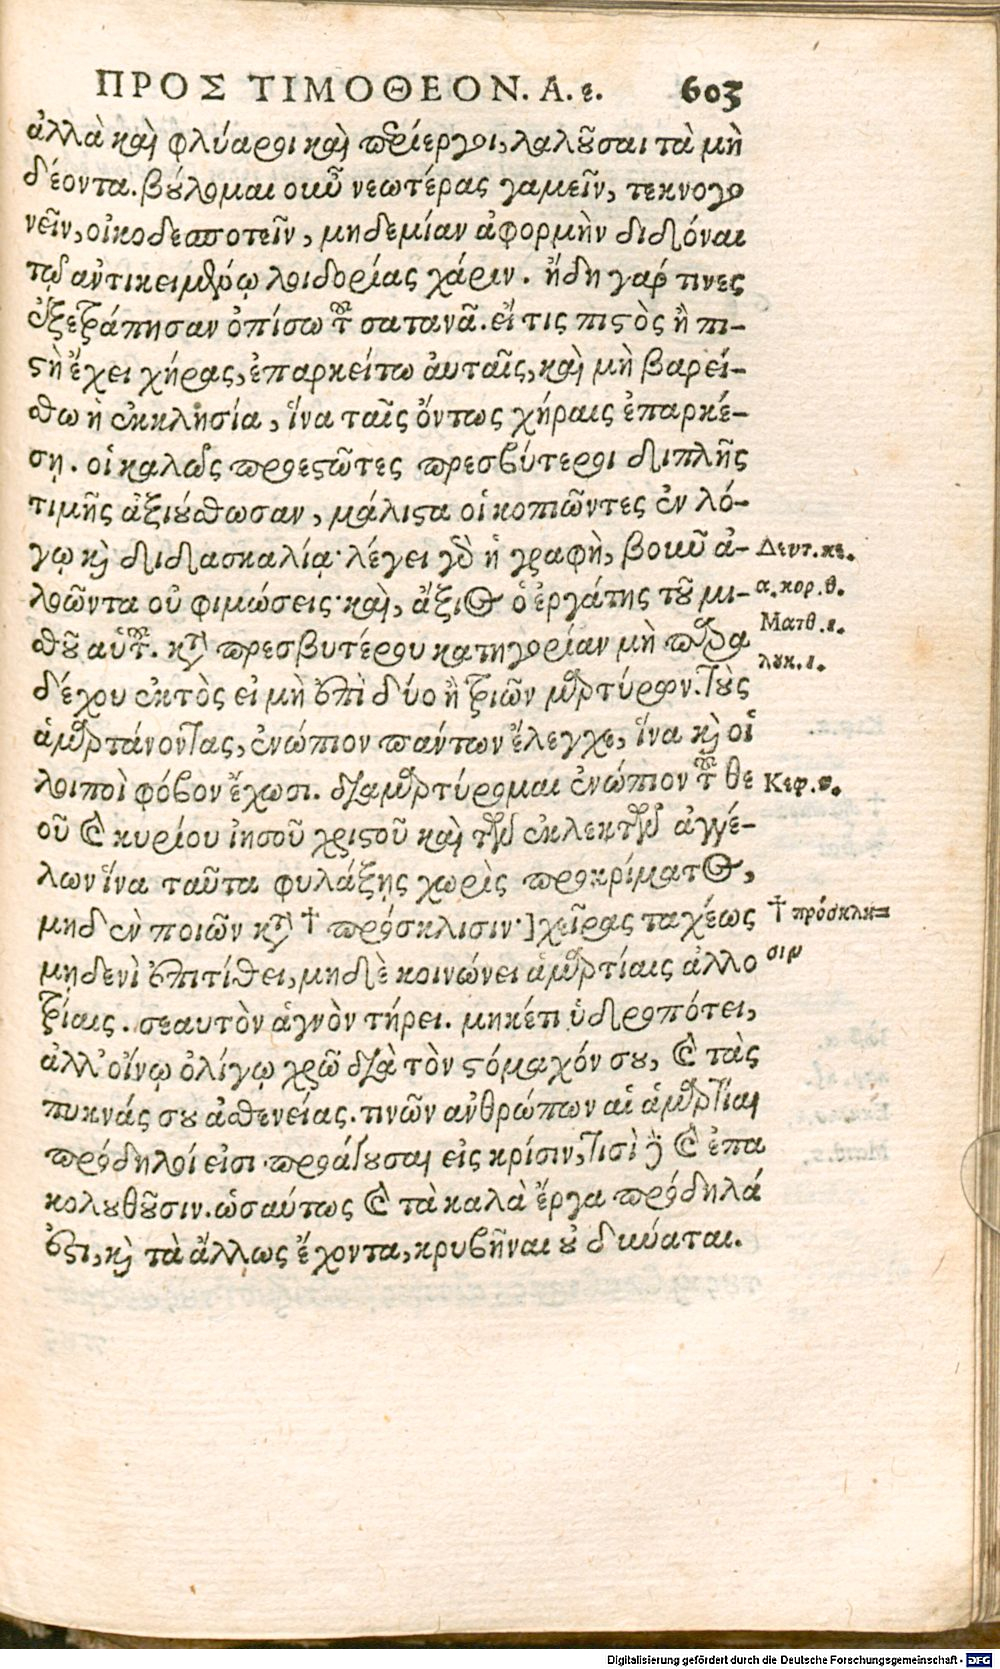 ΠΡΟΣ ΤΙΜΟΘΕΟΝ. Α. ε. 603
ἀλλὰ καὶ φλύαροι καὶ περίεργοι, λαλοῦσαι τὰ μὴ
δέοντα. βούλομαι οὖν νεωτέρας γαμεῖν, τεκνογο
νεῖν, οἰκοδεσποτεῖν, μηδεμίαν ἀφορμὴν διδόναι
τῷ ἀντικειμένῳ λοιδορίας χάριν. ἤδη γάρ τινες
ἐξετράπησαν ὀπίσω τοῦ σατανᾶ. εἴ τις πιστὸς ἢ πι-
στὴ ἔχει χήρας, ἐπαρκείτω αὐταῖς, καὶ μὴ βαρεί-
σθω ἡ ἐκκλησία, ἵνα ταῖς ὄντως χήραις ἐπαρκέ-
σῃ. οἱ καλῶς προεστῶτες πρεσβύτεροι διπλῆς
τιμῆς ἀξιούσθωσαν, μάλιστα οἱ κοπιῶντες ἐν λό-
γῳ καὶ διδασκαλίᾳ· λέγει γὰρ ἡ γραφὴ, βοῦν ἀ-
λοῶντα οὐ φιμώσεις· καὶ, ἄξιος ὁ ἐργάτης τοῦ μι-
σθοῦ αὐτοῦ. κατὰ πρεσβυτέρου κατηγορίαν μὴ παρα
δέχου ἐκτὸς εἰ μὴ ἐπὶ δύο ἢ τριῶν μαρτύρων. τοὺς
ἁμαρτάνοντας, ἐνώπιον πάντων ἔλεγχε, ἵνα καὶ οἱ
λοιποὶ φόβον ἔχωσι. διαμαρτύρομαι ἐνώπιον τοῦ θε
οῦ καὶ κυρίου ἰησοῦ χριστοῦ καὶ τῶν ἐκλεκτῶν ἀγγέ-
λων ἵνα ταῦτα φυλάξῃς χωρὶς προκρίματος,
μηδὲν ποιῶν κατὰ † πρόσκλισιν·] χεῖρας ταχέως
μηδενὶ ἐπιτίθει, μηδὲ κοινώνει ἁμαρτίαις ἀλλο
τρίαις. σεαυτὸν ἁγνὸν τήρει. μηκέτι ὑδροπότει,
ἀλλ' οἴνῳ ὀλίγῳ χρῶ διὰ τὸν στόμαχόν σου, καὶ τὰς
πυκνάς σου ἀσθενείας. τινῶν ἀνθρώπων αἱ ἁμαρτίαι
πρόδηλοί εἰσι προάγουσαι εἰς κρίσιν, τισὶ δὲ καὶ ἐπα
κολουθοῦσιν. ὡσαύτως καὶ τὰ καλὰ ἔργα πρόδηλά
ἐστι, καὶ τὰ ἄλλως ἔχοντα, κρυβῆναι οὐ δύναται.
Δευτ. κε.
α. κορ. θ.
Ματθ. ι.
λουκ. ι.
Κεφ.
† πρόσκλη=
σιν
Digitalisierung gefördert durch die Deutsche Forschungsgemeinschaft - DFG